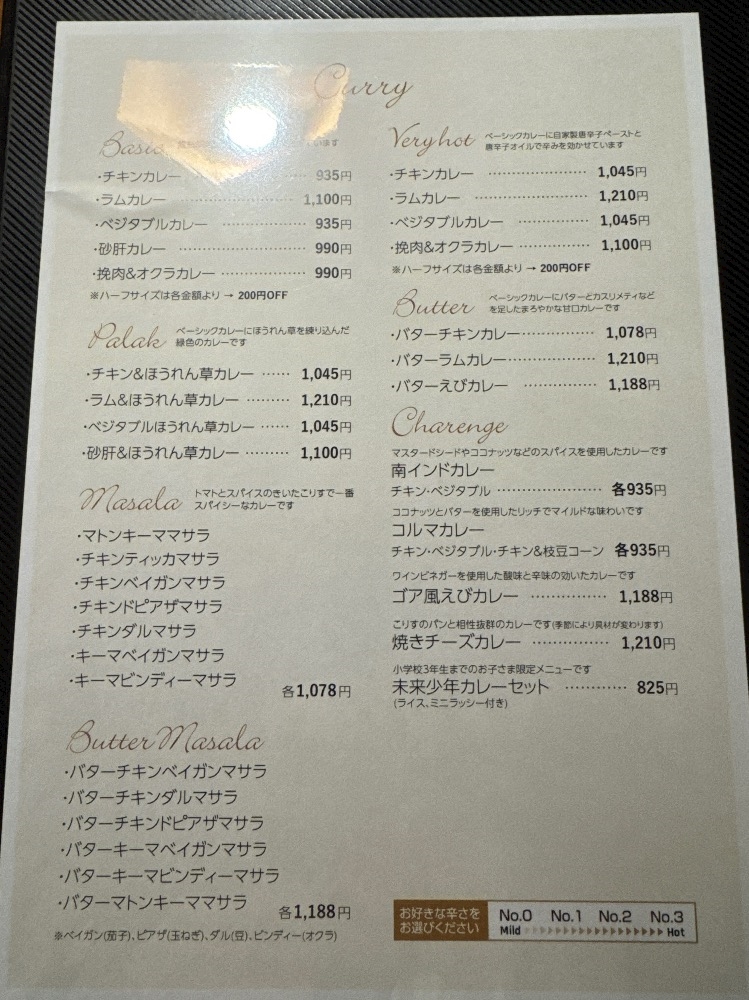 Curry
Basic
います
・チキンカレー 935円
・ラムカレー ………………… 1,100円
・ベジタブルカレー ……………… 935円
・砂肝カレー …………………… 990円
・挽肉&オクラカレー …………… 990円
※ハーフサイズは各金額より → 200円OFF
Palak
ベーシックカレーにほうれん草を練り込んだ
緑色のカレーです
・チキン&ほうれん草カレー …… 1,045円
・ラム&ほうれん草カレー ……… 1,210円
・ベジタブルほうれん草カレー …… 1,045円
・砂肝&ほうれん草カレー ……… 1,100円
Masala
トマトとスパイスのきいたこりすで一番
スパイシーなカレーです
・マトンキーママサラ
・チキンティッカマサラ
・チキンベイガンマサラ
・チキンドピアザマサラ
・チキンダルマサラ
・キーマベイガンマサラ
・キーマビンディーマサラ
各1,078円
Butter Masala
・バターチキンベイガンマサラ
・バターチキンダルマサラ
・バターチキンドピアザマサラ
・バターキーマベイガンマサラ
・バターキーマビンディーマサラ
・バターマトンキーママサラ
各1,188円
※ベイガン(茄子)、ピアザ(玉ねぎ)、ダル(豆)、ビンディー(オクラ)
Very hot
ベーシックカレーに自家製唐辛子ペーストと
唐辛子オイルで辛みを効かせています
・チキンカレー ………………… 1,045円
・ラムカレー …………………… 1,210円
・ベジタブルカレー …………… 1,045円
・挽肉&オクラカレー ………… 1,100円
※ハーフサイズは各金額より → 200円OFF
Butter
ベーシックカレーにバターとカスリメティなど
を足したまろやかな甘口カレーです
・バターチキンカレー…………… 1,078円
・バターラムカレー …………… 1,210円
・バターえびカレー …………… 1,188円
Charenge
マスタードシードやココナッツなどのスパイスを使用したカレーです
南インドカレー
チキン・ベジタブル ………………… 各935円
ココナッツとバターを使用したリッチでマイルドな味わいです
コルマカレー
チキン・ベジタブル・チキン&枝豆コーン 各935円
ワインビネガーを使用した酸味と辛味の効いたカレーです
ゴア風えびカレー …………… 1,188円
こりすのパンと相性抜群のカレーです(季節により具材が変わります)
焼きチーズカレー …………… 1,210円
小学校3年生までのお子さま限定メニューです
未来少年カレーセット ………… 825円
(ライス、ミニラッシー付き)
お好きな辛さを
お選びください
No.0 No.1 No.2 No.3
Mild Hot